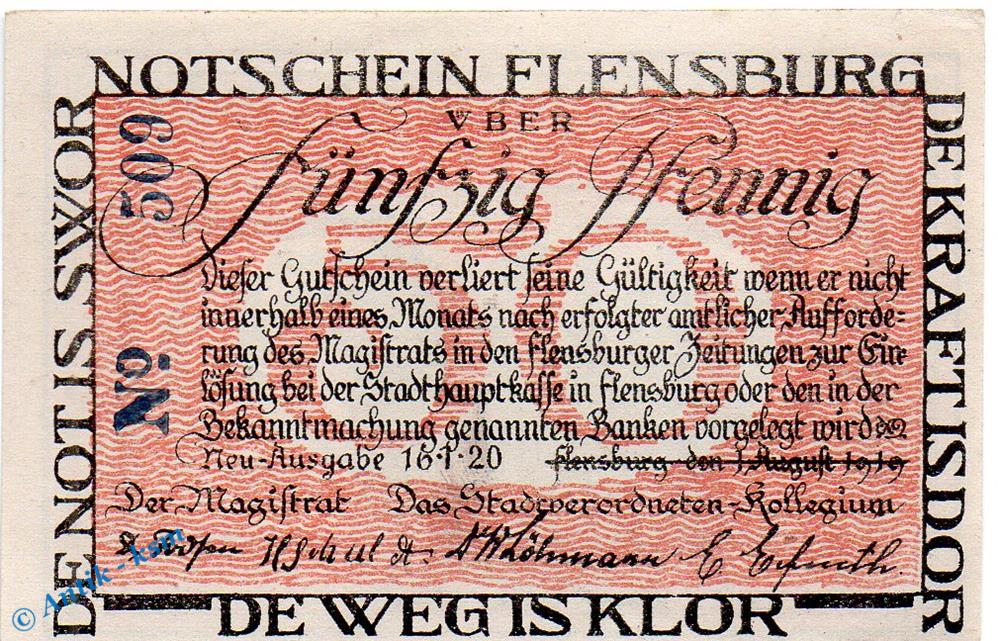 NOTSCHEIN FLENSBURG
DE NOT IS SWOR
DE KRAFT IS DOR
DE WEG IS KLOR
№ 509
VBER
Fünfzig Pfennig
Dieser Gutschein verliert seine Gültigkeit wenn er nicht
innerhalb eines Monats nach erfolgter amtlicher Aufforde-
rung des Magistrats in den Flensburger Zeitungen zur Ein-
lösung bei der Stadthauptkasse in Flensburg oder den in der
Bekanntmachung genannten Banken vorgelegt wird
Neu-Ausgabe 16·1·20 Flensburg den 1 August 1919
Der Magistrat Das Stadtverordneten-Kollegium
© Antik - ksm